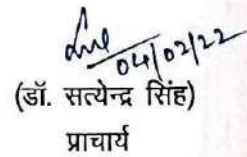 04/02/22
(डॉ. सत्येन्द्र सिंह)
प्राचार्य